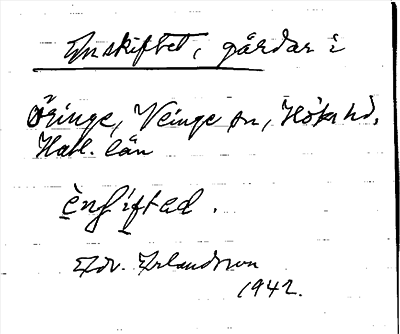 Enskiftet, gårdar i
Öringe, Veinge sn, Höks hd,
Hall. län
ènsſiftad.
Edv. Erlandsson
1942.